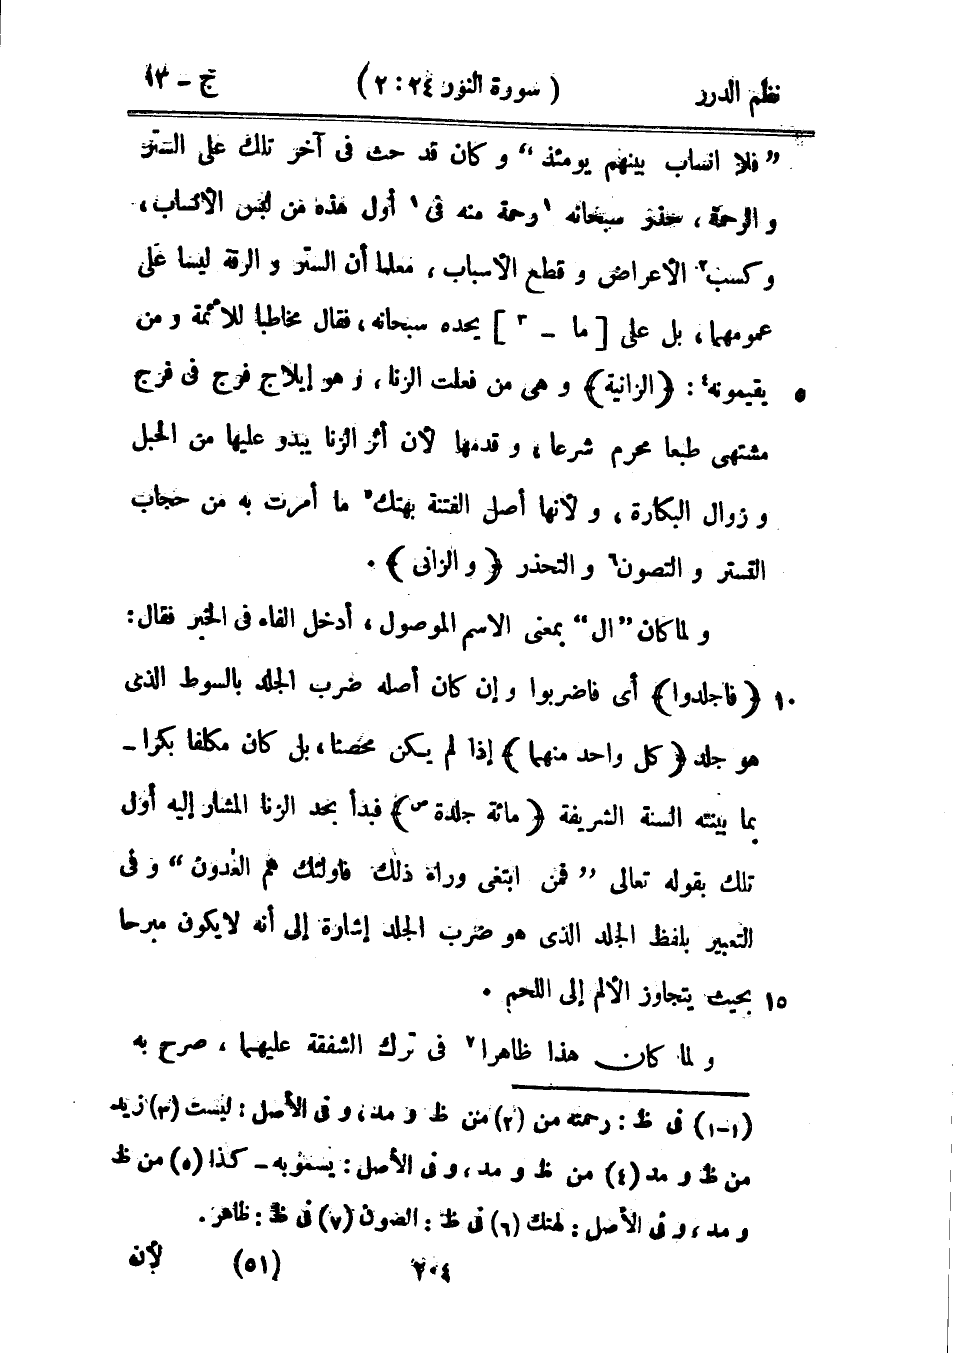 نظم الدرر ( سورة النور ٢٤ : ٢ ) ج - ١٣
” فلا انساب بينهم يومئذ “ و كان قد حث فى آخر تلك على الستر
و الرحمة ، حذر سبحانه ١ رحمة منه فى ١ أول هذه من لبس الأنساب ،
و كسب٢ الأعراض و قطع الأسباب ، معلما أن الستر و الرقة ليسا على
عمومهما ، بل على [ ما - ٣ ] يحده سبحانه ، فقال مخاطبا للأئمة و من
٥ يقيمونه٤ : ﴿ الزانية ﴾ و هى من فعلت الزنا ، و هو إيلاج فرج فى فرج
مشتهى طبعا محرم شرعا ، و قدمها لأن أثر الزنا يبدو عليها من الحبل
و زوال البكارة ، و لأنها أصل الفتنة بهتك٥ ما أمرت به من حجاب
التستر و التصون٦ و التحذر ﴿ و الزانى ﴾ .
و لما كان ” ال “ بمعنى الاسم الموصول ، أدخل الفاء فى الخبر فقال :
١٠ ﴿ فاجلدوا ﴾ أى فاضربوا و إن كان أصله ضرب الجلد بالسوط الذى
هو جلد ﴿ كل واحد منهما ﴾ إذا لم يكن محصنا ، بل كان مكلفا بكرا -
بما بينته السنة الشريفة ﴿ مائة جلدة ص ﴾ فبدأ بحد الزنا المشار إليه أول
تلك بقوله تعالى ” فمن ابتغى وراء ذلك فاولئك هم العٰدون “ و فى
التعبير بلفظ الجلد الذى هو ضرب الجلد إشارة إلى أنه لا يكون مبرحا
١٥ بحيث يتجاوز الألم إلى اللحم .
و لما كان هذا ظاهرا٧ فى ترك الشفقة عليهما ، صرح به
(١-١) فى ظ : رحمته من (٢) من ظ و مد ، و فى الأصل : ليست (٣) زيد
من ظ و مد (٤) من ظ و مد ، و فى الأصل : يسمونه - كذا (٥) من ظ
و مد ، و فى الأصل : لهتك (٦) فى ظ : الصون (٧) فى ظ : ظاهر .
٢٠٤ (٥١) لأن